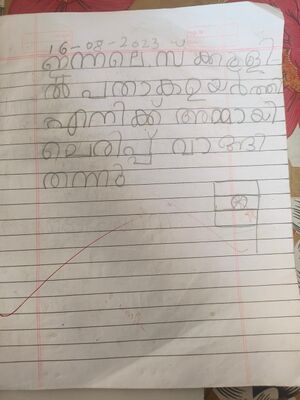 16-08-2023
ഇന്നലെ സ്കൂളി
ൽ പതാക ഉയർത്തി
എനിക്ക് അമ്മായി
ചെരിപ്പ് വാങ്ങി
തന്നു